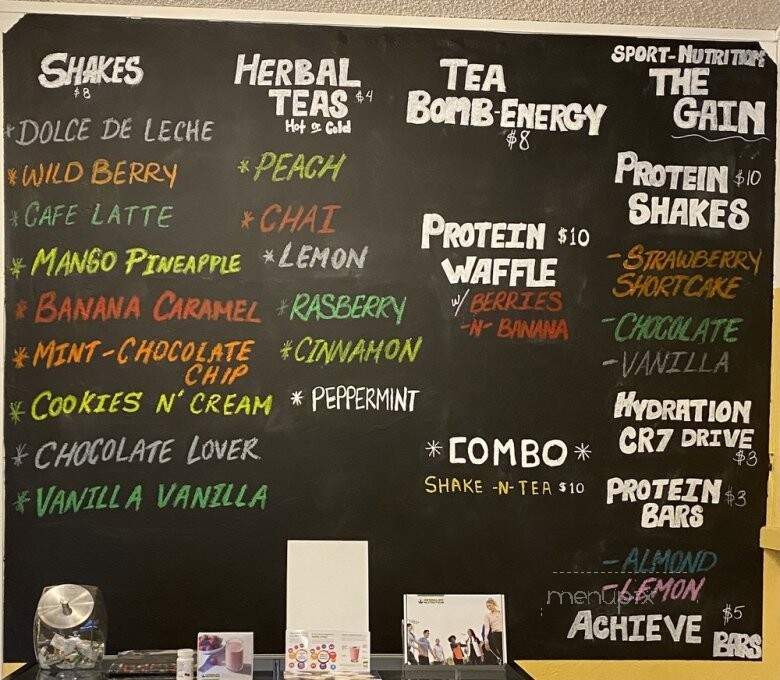 SHAKES
$8
*DOLCE DE LECHE
*WILD BERRY
*CAFE LATTE
*MANGO PINEAPPLE
*BANANA CARAMEL
*MINT-CHOCOLATE
CHIP
*COOKIES N' CREAM
*CHOCOLATE LOVER
*VANILLA VANILLA
HERBAL
TEAS $4
Hot or Cold
*PEACH
*CHAI
*LEMON
*RASBERRY
*CINNAMON
*PEPPERMINT
TEA
BOMB-ENERGY
$8
PROTEIN $10
WAFFLE
w/ BERRIES
-N- BANANA
*COMBO*
SHAKE -N-TEA $10
SPORT-NUTRITION
THE
GAIN
PROTEIN $10
SHAKES
-STRAWBERRY
SHORTCAKE
-CHOCOLATE
-VANILLA
HYDRATION
CR7 DRIVE
$3
PROTEIN $3
BARS
-ALMOND
-LEMON
menupix
ACHIEVE $5
BARS